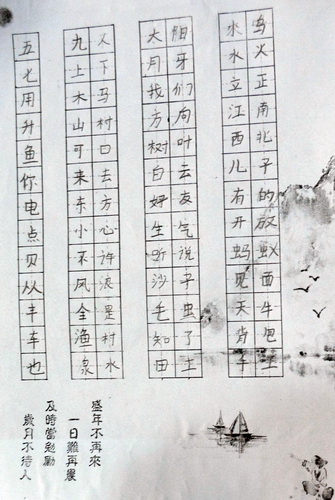 鸣火正南北子的放蚁面牛包土
水水立江西儿有开蚂见天背子
细牙们向叶云友气说子虫了土
大月我方树白好生听沙毛知田
人下马村口去方心许浪是村水
九上木山可来东小不风全渔泉
五七用升鱼你电点贝从丰车也
盛年不再來
一日難再晨
及時當勉勵
歲月不待人